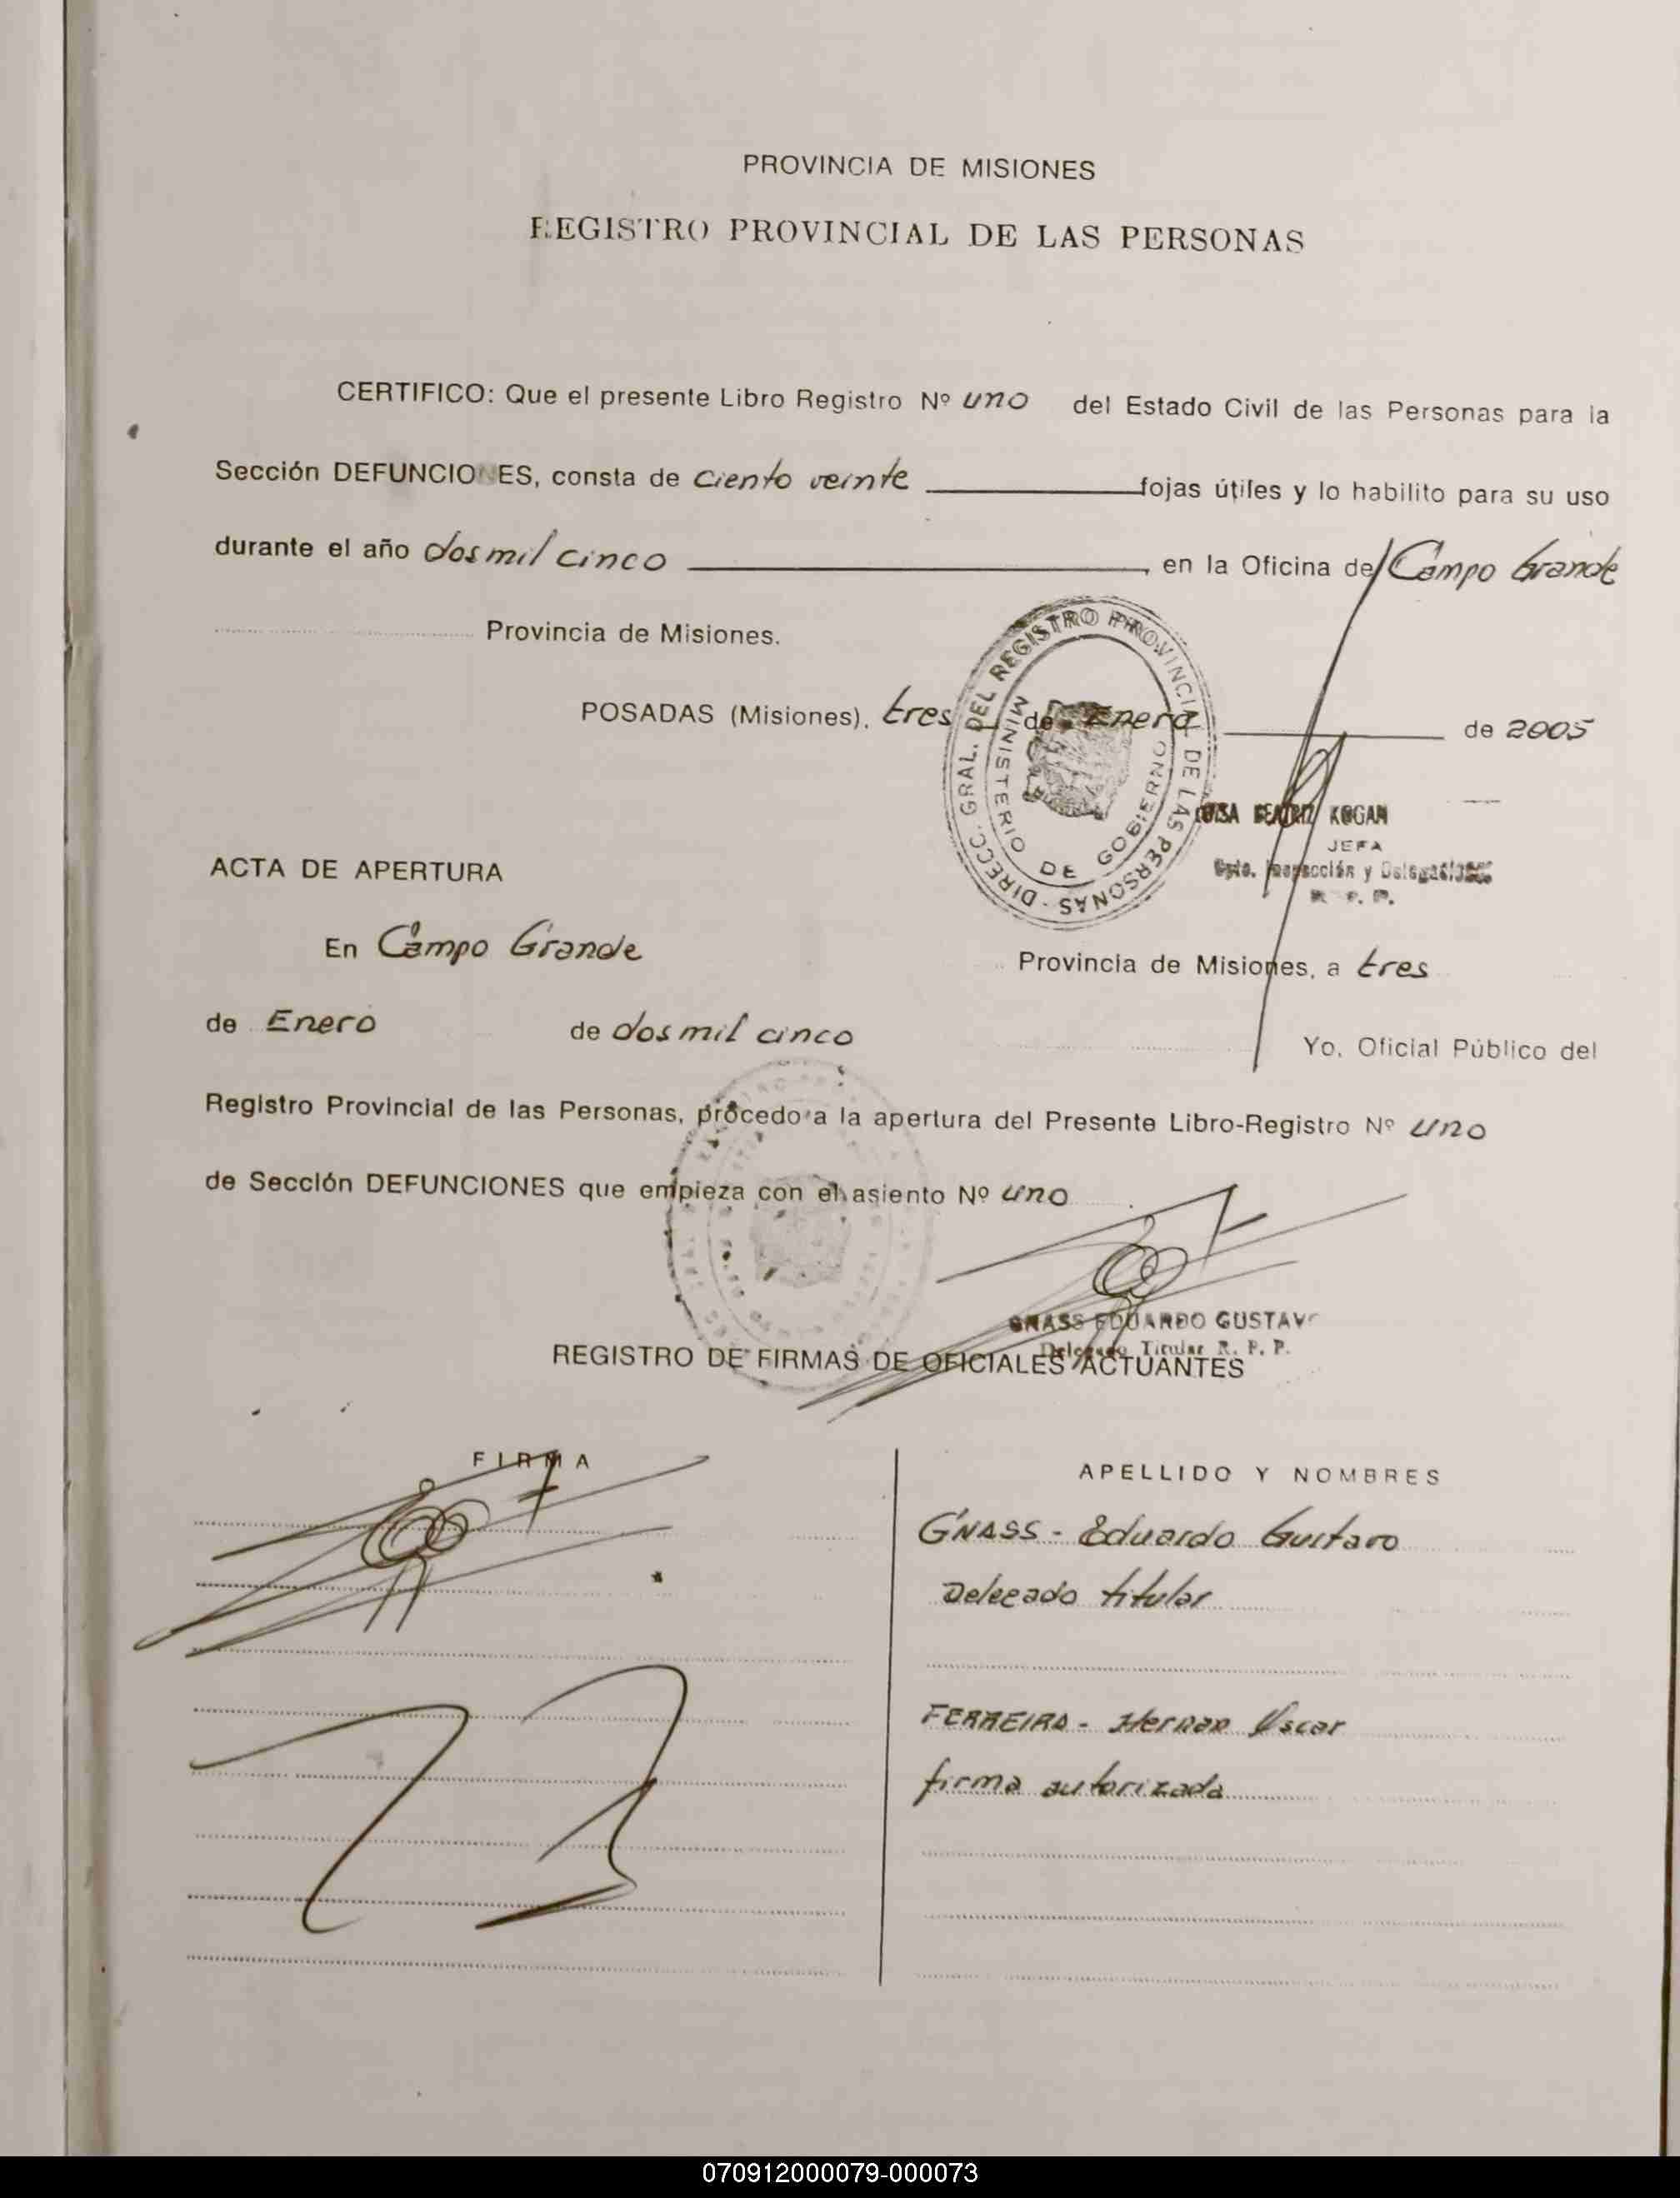 PROVINCIA DE MISIONES
REGISTRO PROVINCIAL DE LAS PERSONAS
CERTIFICO: Que el presente Libro Registro Nº uno del Estado Civil de las Personas para la
Sección DEFUNCIONES, consta de ciento veinte fojas útiles y lo habilito para su uso
durante el año dos mil cinco, en la Oficina de Campo Grande
Provincia de Misiones.
POSADAS (Misiones), tres de Enero de 2005
DIRECC. GRAL. DEL REGISTRO PROVINCIAL DE LAS PERSONAS
MINISTERIO DE GOBIERNO
BEATRIZ KOGAN
JEFA
Dpto. Inspección y Delegaciones
R. P. P.
ACTA DE APERTURA
En Campo Grande Provincia de Misiones, a tres
de Enero de dos mil cinco Yo, Oficial Público del
Registro Provincial de las Personas, procedo a la apertura del Presente Libro-Registro Nº uno
de Sección DEFUNCIONES que empieza con el asiento Nº uno
GNASS EDUARDO GUSTAVO
Delegado Titular R. P. P.
REGISTRO DE FIRMAS DE OFICIALES ACTUANTES
FIRMA APELLIDO Y NOMBRES
GNASS - Eduardo Gustavo
Delegado titular
FERREIRA - Hernan Oscar
firma autorizada
070912000079-000073